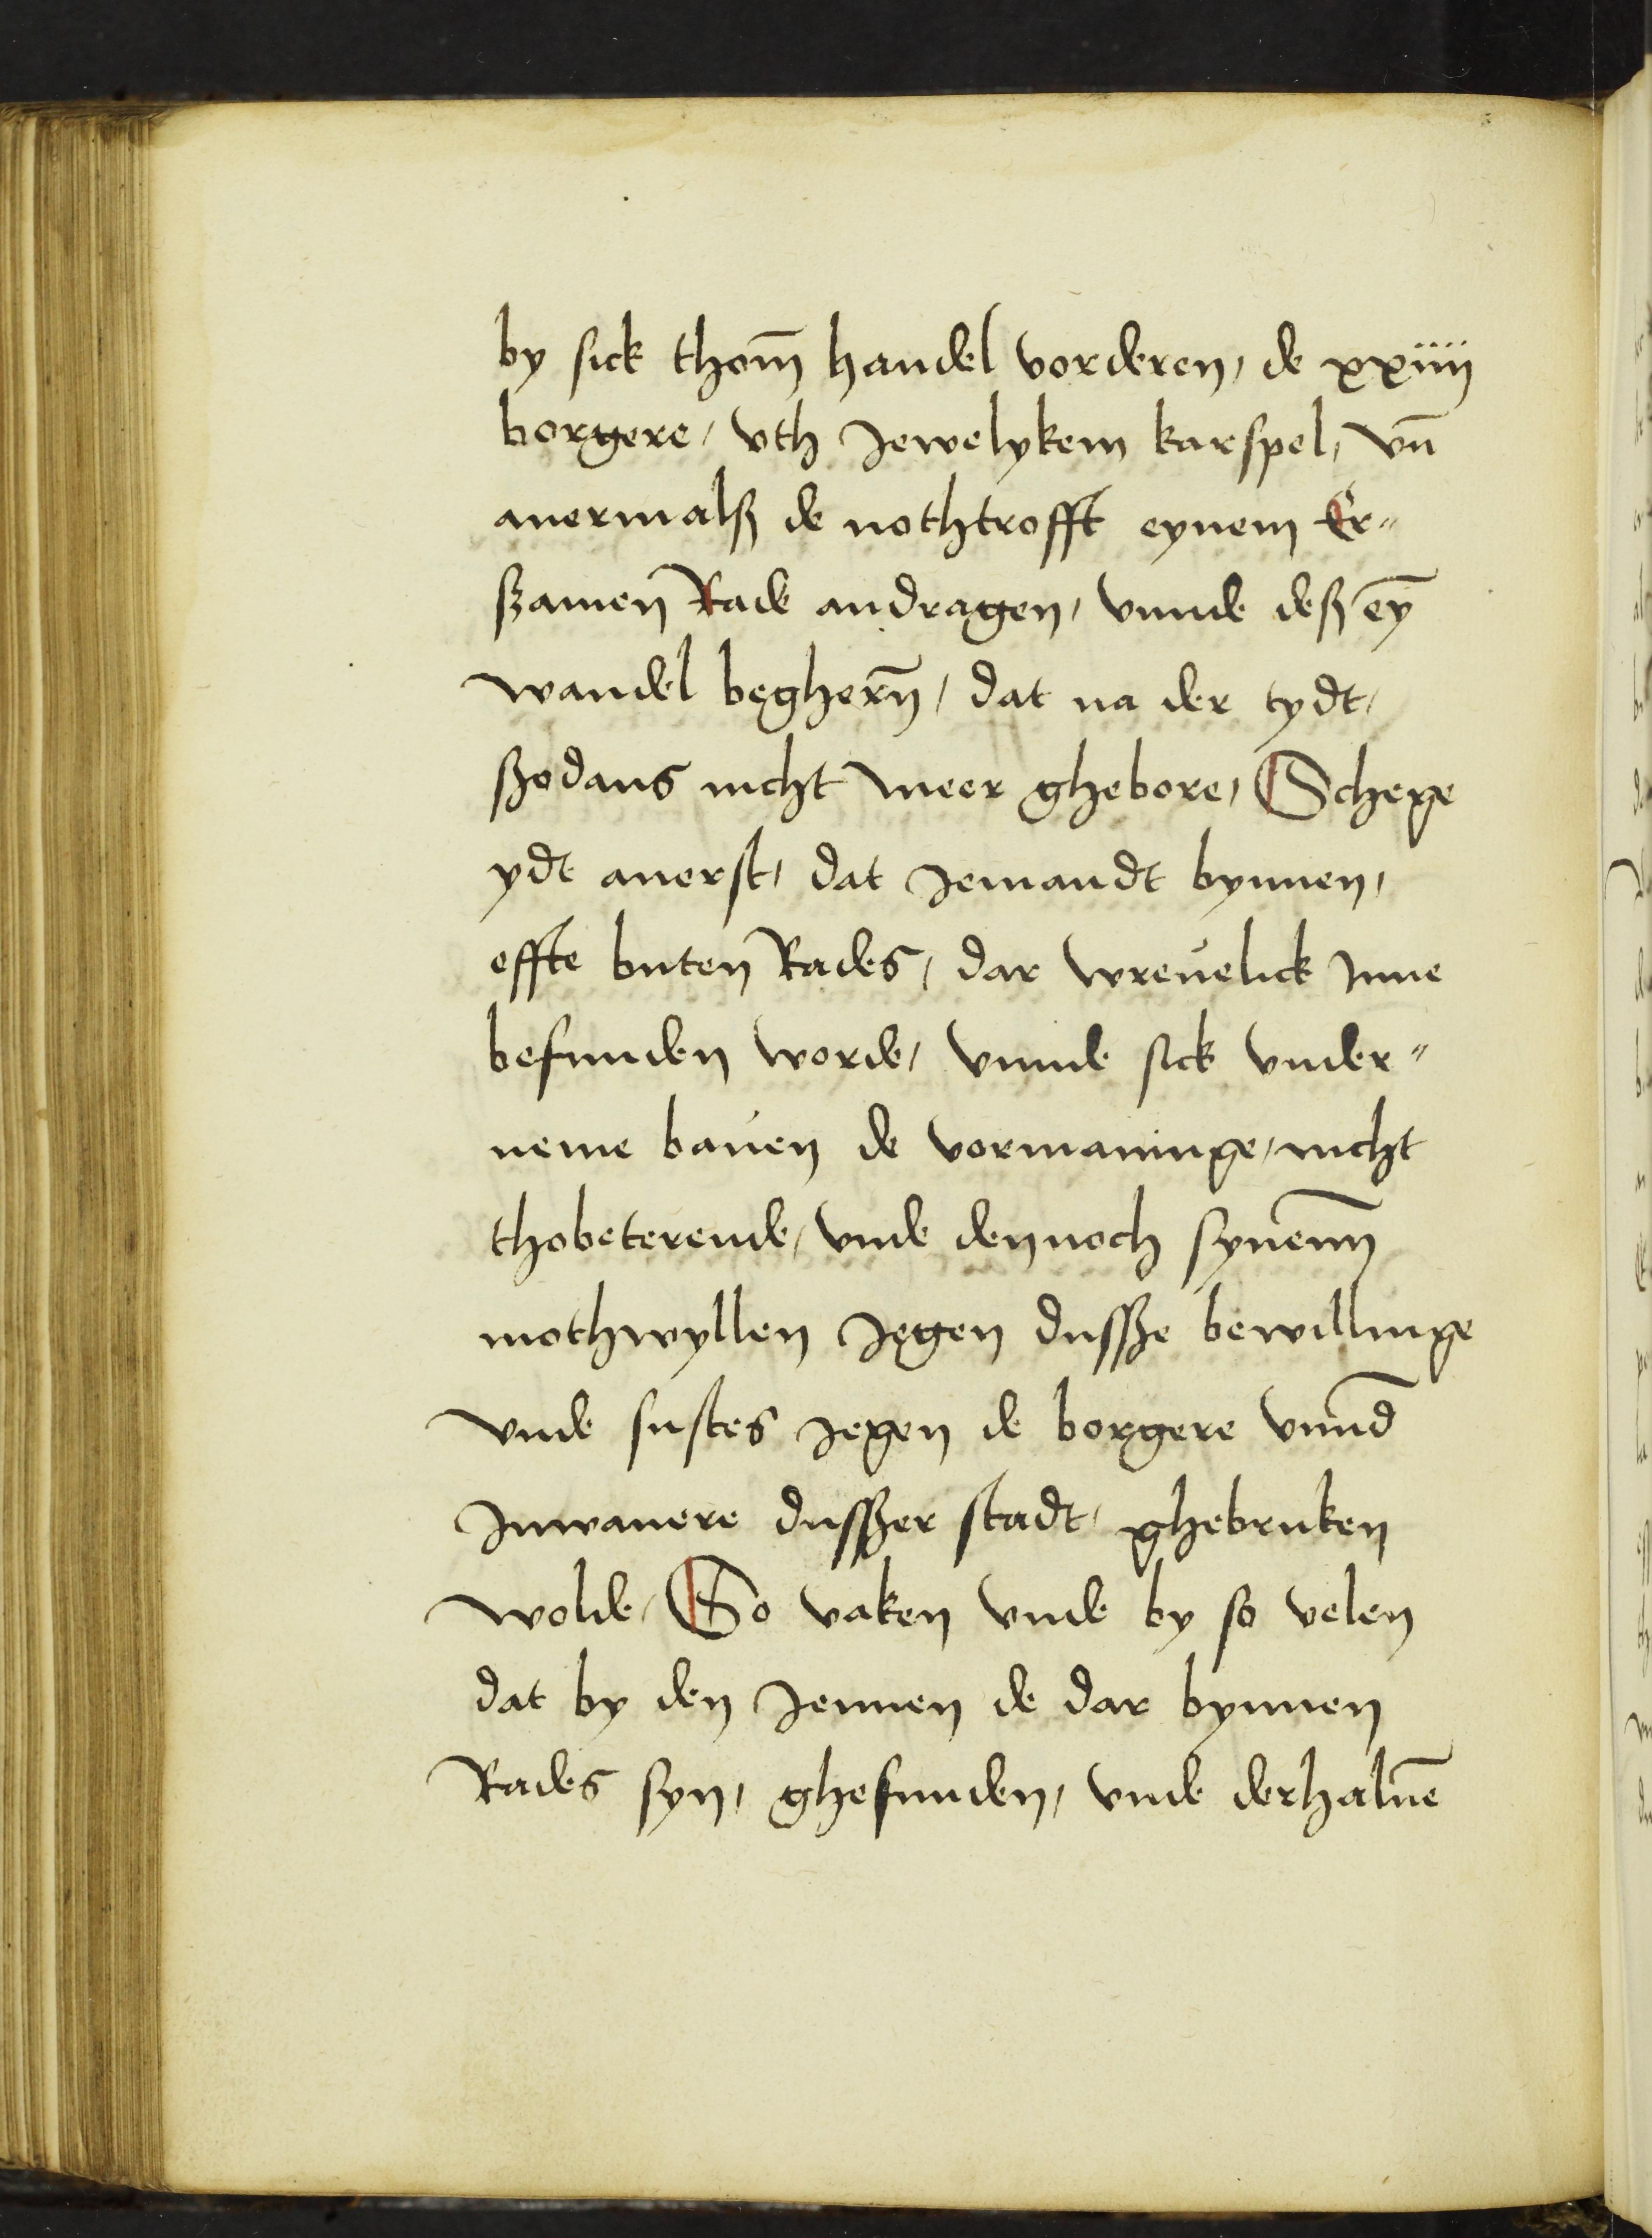 by sick thom̄ handel vorderen, de xxiiij
borgere, vth Jewelykem karspel, vn̄
auermalß de nothtrofft eynem Er„
ßamen Rade andragen, vnnde deß eȳ
wandel begherñ, dat na der tydt,
ßodans nicht meer ghebore, Schege
ydt auerst, dat Jemandt bynnen,
effte buten Rades, dar wreuelick Inne
befunden worde, vnnde sick vnder„
neme bauen de vormaninge, nicht
thobeterende, vnde dennoch synenn̄
mothwyllen Jegen dussße bewillinge
vnde sustes Jegen de borgere vnnd̄
Inwanere dussßer stadt, ghebruken
wolde, So vaken vnde by so velen
dat by den Jennen de dar bynnen
Rades syn, ghefunden, vnde derhaluē